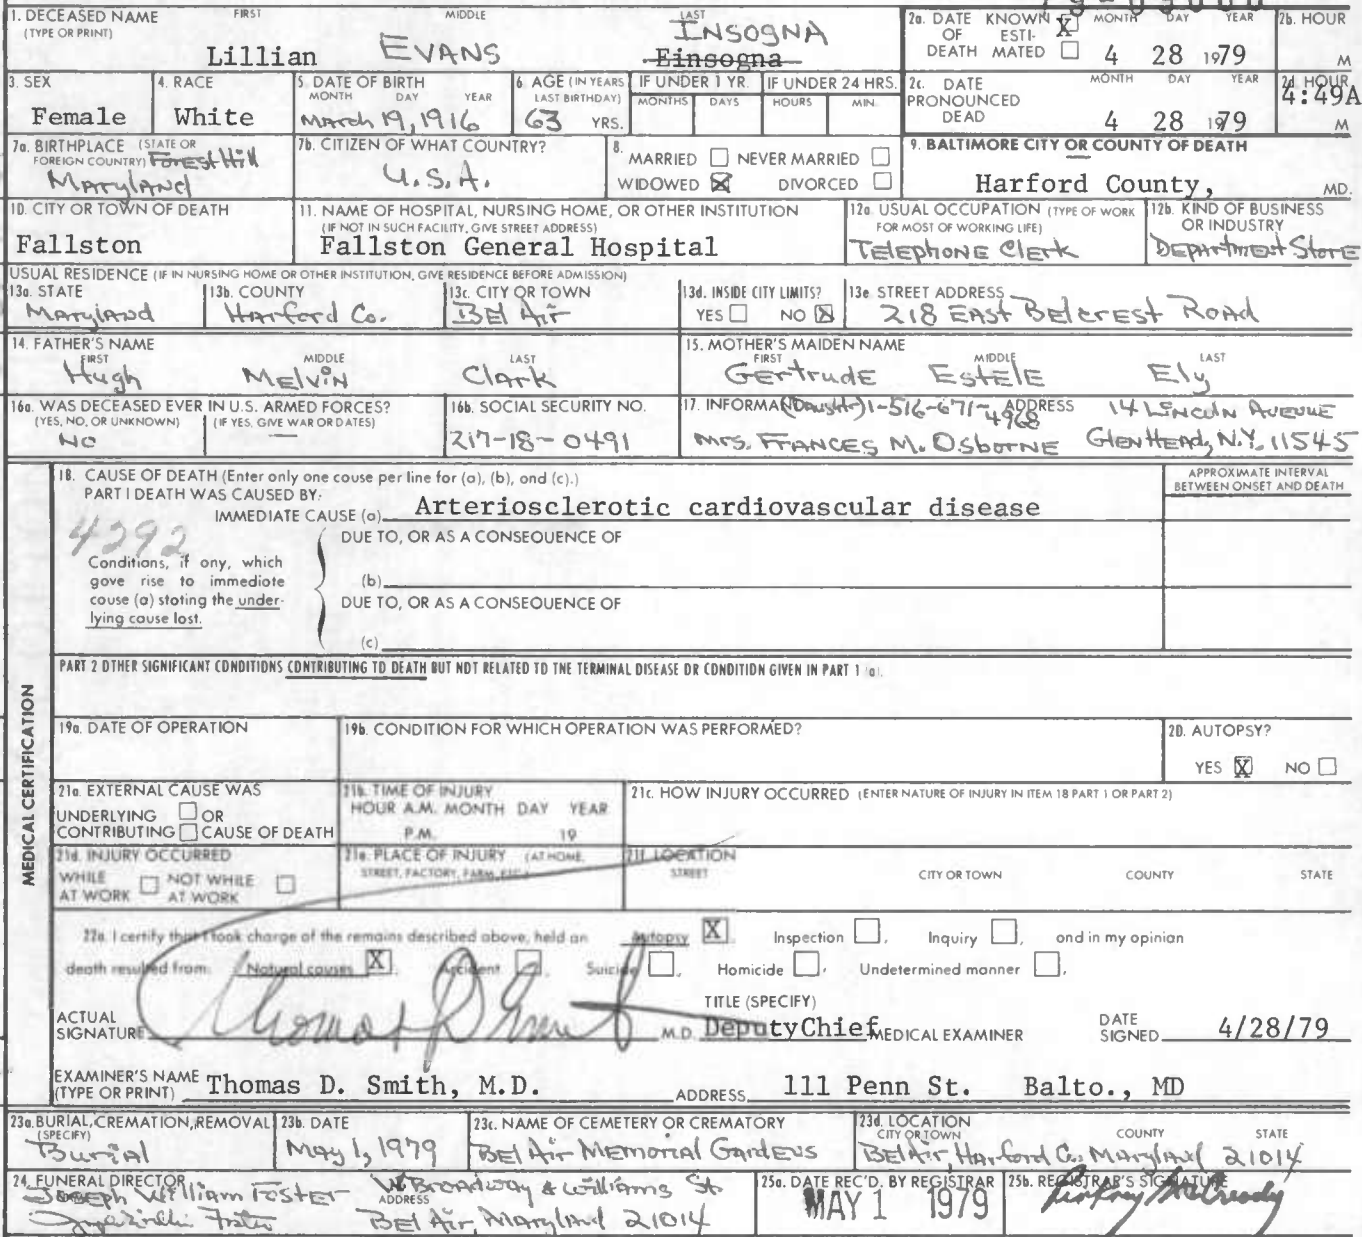 1. DECEASED NAME (TYPE OR PRINT) FIRST MIDDLE LAST
Lillian EVANS INSOGNA Einsogna
2a. DATE OF DEATH KNOWN X ESTIMATED MONTH DAY YEAR 2b. HOUR
4 28 1979 M
3. SEX 4. RACE 5. DATE OF BIRTH MONTH DAY YEAR 6. AGE (IN YEARS LAST BIRTHDAY) IF UNDER 1 YR. MONTHS DAYS IF UNDER 24 HRS. HOURS MIN.
Female White March 19, 1916 63 YRS.
2c. DATE PRONOUNCED DEAD MONTH DAY YEAR 2d HOUR
4 28 1979 4:49A M
7a. BIRTHPLACE (STATE OR FOREIGN COUNTRY) Forest Hill
Maryland
7b. CITIZEN OF WHAT COUNTRY?
U.S.A.
8. MARRIED NEVER MARRIED
WIDOWED X DIVORCED
9. BALTIMORE CITY OR COUNTY OF DEATH
Harford County, MD.
10. CITY OR TOWN OF DEATH
Fallston
11. NAME OF HOSPITAL, NURSING HOME, OR OTHER INSTITUTION
(IF NOT IN SUCH FACILITY, GIVE STREET ADDRESS)
Fallston General Hospital
12a. USUAL OCCUPATION (TYPE OF WORK FOR MOST OF WORKING LIFE)
Telephone Clerk
12b. KIND OF BUSINESS OR INDUSTRY
Department Store
USUAL RESIDENCE (IF IN NURSING HOME OR OTHER INSTITUTION, GIVE RESIDENCE BEFORE ADMISSION)
13a. STATE 13b. COUNTY 13c. CITY OR TOWN 13d. INSIDE CITY LIMITS? 13e STREET ADDRESS
Maryland Harford Co. Bel Air YES NO X 218 East Belcrest Road
14. FATHER'S NAME FIRST MIDDLE LAST
Hugh Melvin Clark
15. MOTHER'S MAIDEN NAME FIRST MIDDLE LAST
Gertrude Estele Ely
16a. WAS DECEASED EVER IN U.S. ARMED FORCES?
(YES, NO, OR UNKNOWN) (IF YES, GIVE WAR OR DATES)
NO
16b. SOCIAL SECURITY NO.
217-18-0491
17. INFORMANT (Daught.) 1-516-671-4968 ADDRESS 14 Lincoln Avenue
Mrs. Frances M. Osborne Glen Head, N.Y. 11545
MEDICAL CERTIFICATION
18. CAUSE OF DEATH (Enter only one couse per line for (a), (b), ond (c).)
PART I DEATH WAS CAUSED BY:
APPROXIMATE INTERVAL BETWEEN ONSET AND DEATH
IMMEDIATE CAUSE (a) Arteriosclerotic cardiovascular disease
4292
Conditions, if ony, which gove rise to immediote couse (a) stoting the under-lying couse lost.
DUE TO, OR AS A CONSEQUENCE OF
(b)
DUE TO, OR AS A CONSEQUENCE OF
(c)
PART 2 OTHER SIGNIFICANT CONDITIONS CONTRIBUTING TO DEATH BUT NOT RELATED TO THE TERMINAL DISEASE OR CONDITION GIVEN IN PART 1 (a).
19a. DATE OF OPERATION
19b. CONDITION FOR WHICH OPERATION WAS PERFORMED?
20. AUTOPSY?
YES X NO
21a. EXTERNAL CAUSE WAS
UNDERLYING OR
CONTRIBUTING CAUSE OF DEATH
21b. TIME OF INJURY
HOUR A.M. MONTH DAY YEAR
P.M. 19
21c. HOW INJURY OCCURRED (ENTER NATURE OF INJURY IN ITEM 18 PART 1 OR PART 2)
21d. INJURY OCCURRED
WHILE AT WORK NOT WHILE AT WORK
21e. PLACE OF INJURY (AT HOME, STREET, FACTORY, FARM, ETC.)
21f. LOCATION
STREET CITY OR TOWN COUNTY STATE
22a. I certify that I took charge of the remains described above, held an Autopsy X. Inspection , Inquiry , ond in my opinion
death resulted from: Natural causes X. Accident , Suicide , Homicide , Undetermined monner ,
ACTUAL SIGNATURE Thomas D Smith M.D.
TITLE (SPECIFY)
Deputy Chief MEDICAL EXAMINER
DATE SIGNED 4/28/79
EXAMINER'S NAME (TYPE OR PRINT) Thomas D. Smith, M.D. ADDRESS 111 Penn St. Balto., MD
23a. BURIAL, CREMATION, REMOVAL (SPECIFY)
Burial
23b. DATE
May 1, 1979
23c. NAME OF CEMETERY OR CREMATORY
Bel Air Memorial Gardens
23d. LOCATION CITY OR TOWN COUNTY STATE
Bel Air, Harford Co. Maryland 21014
24. FUNERAL DIRECTOR
Joseph William Foster W Broadway & Williams St.
ADDRESS
Joseph William Foster Bel Air, Maryland 21014
25a. DATE REC'D. BY REGISTRAR
MAY 1 1979
25b. REGISTRAR'S SIGNATURE